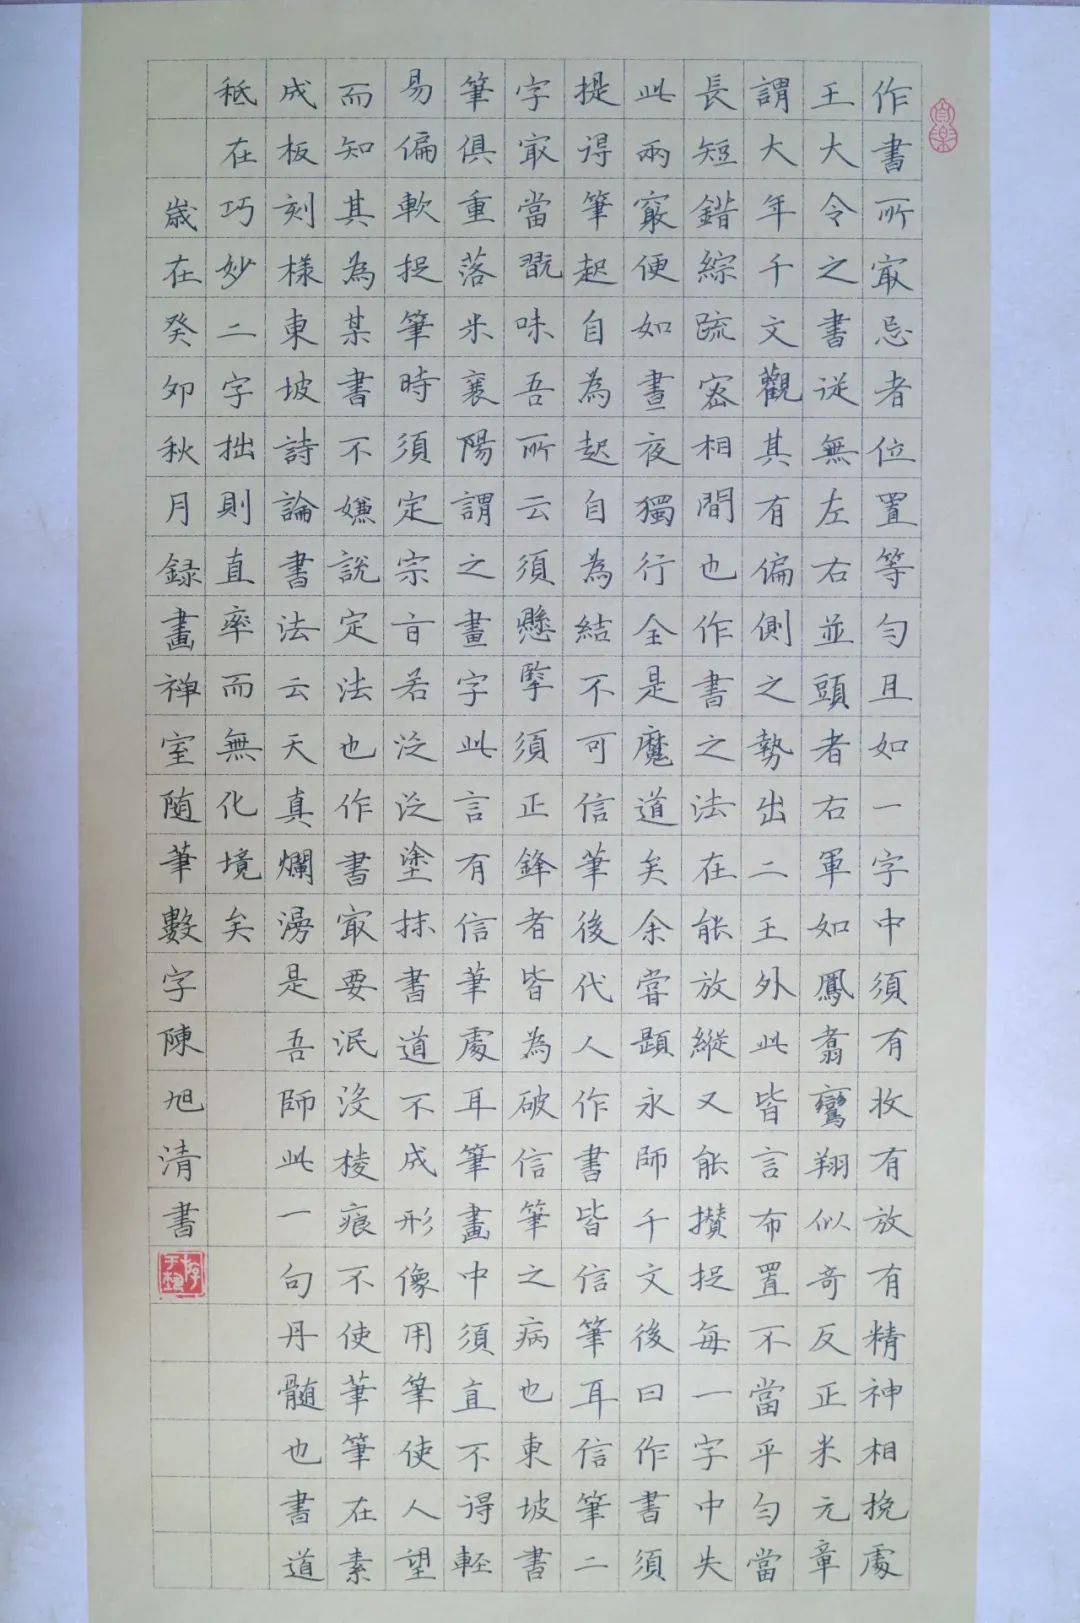 作書所㝡忌者位置等勻且如一字中須有收有放有精神相挽處
王大令之書從無左右並頭者右軍如鳳翥鸞翔似奇反正米元章
謂大年千文觀其有偏側之勢出二王外此皆言布置不當平勻當
長短錯綜疏密相間也作書之法在能放縱又能攢捉每一字中失
此兩竅便如晝夜獨行全是魔道矣余嘗題永師千文後曰作書須
提得筆起自為起自為結不可信筆後代人作書皆信筆耳信筆二
字㝡當翫味吾所云須懸掔須正鋒者皆為破信筆之病也東坡書
筆俱重落米襄陽謂之畫字此言有信筆處耳筆畫中須直不得輕
易偏軟捉筆時須定宗旨若泛泛塗抹書道不成形像用筆使人望
而知其為某書不嫌說定法也作書㝡要泯沒棱痕不使筆筆在素
成板刻樣東坡詩論書法云天真爛漫是吾師此一句丹髓也書道
秪在巧妙二字拙則直率而無化境矣
歲在癸卯秋月録畫禅室随筆數字陳旭清書